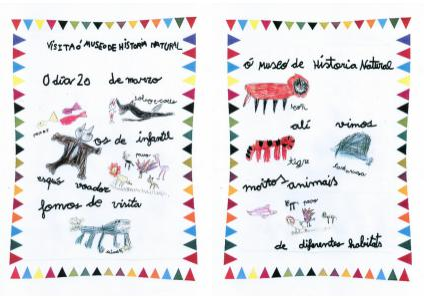 VISITA Ó MUSEO DE HISTORIA NATURAL
O día 20 de marzo
os de infantil
pavo
voador
fomos de visita
ó Museo de Historia Natural
león
alí vimos
tigre
moitos animais
pavo
de diferentes hábitats